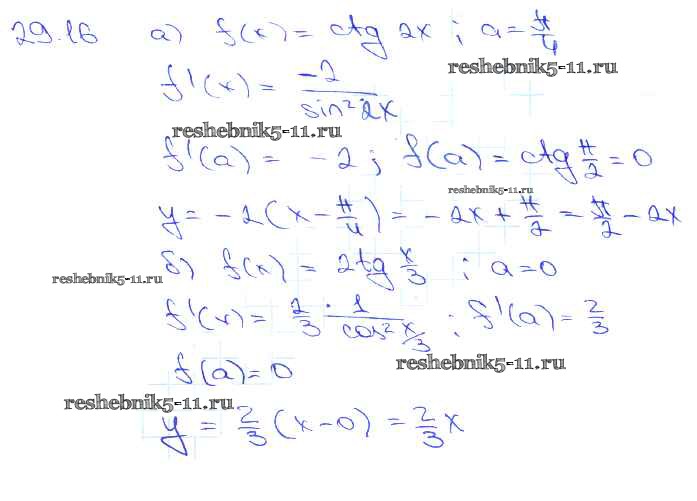 29.16 а) f(x) = ctg 2x ; a = π/4
reshebnik5-11.ru
f'(x) = -2/sin² 2x
reshebnik5-11.ru
f'(a) = -2 ; f(a) = ctg π/2 = 0
reshebnik5-11.ru
y = -2(x - π/4) = -2x + π/2 = π/2 - 2x
reshebnik5-11.ru
б) f(x) = 2tg x/3 ; a = 0
f'(x) = 2/3 · 1/cos² x/3 ; f'(a) = 2/3
reshebnik5-11.ru
f(a) = 0
reshebnik5-11.ru
y = 2/3 (x - 0) = 2/3 x